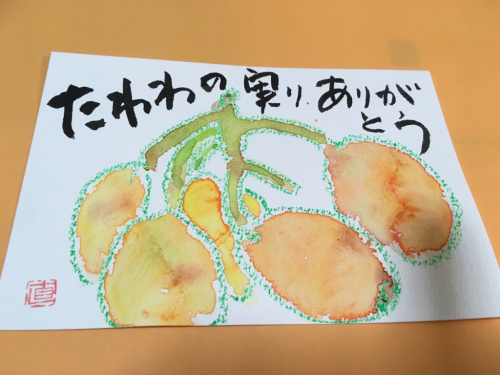 たわわの実りありが
とう
真